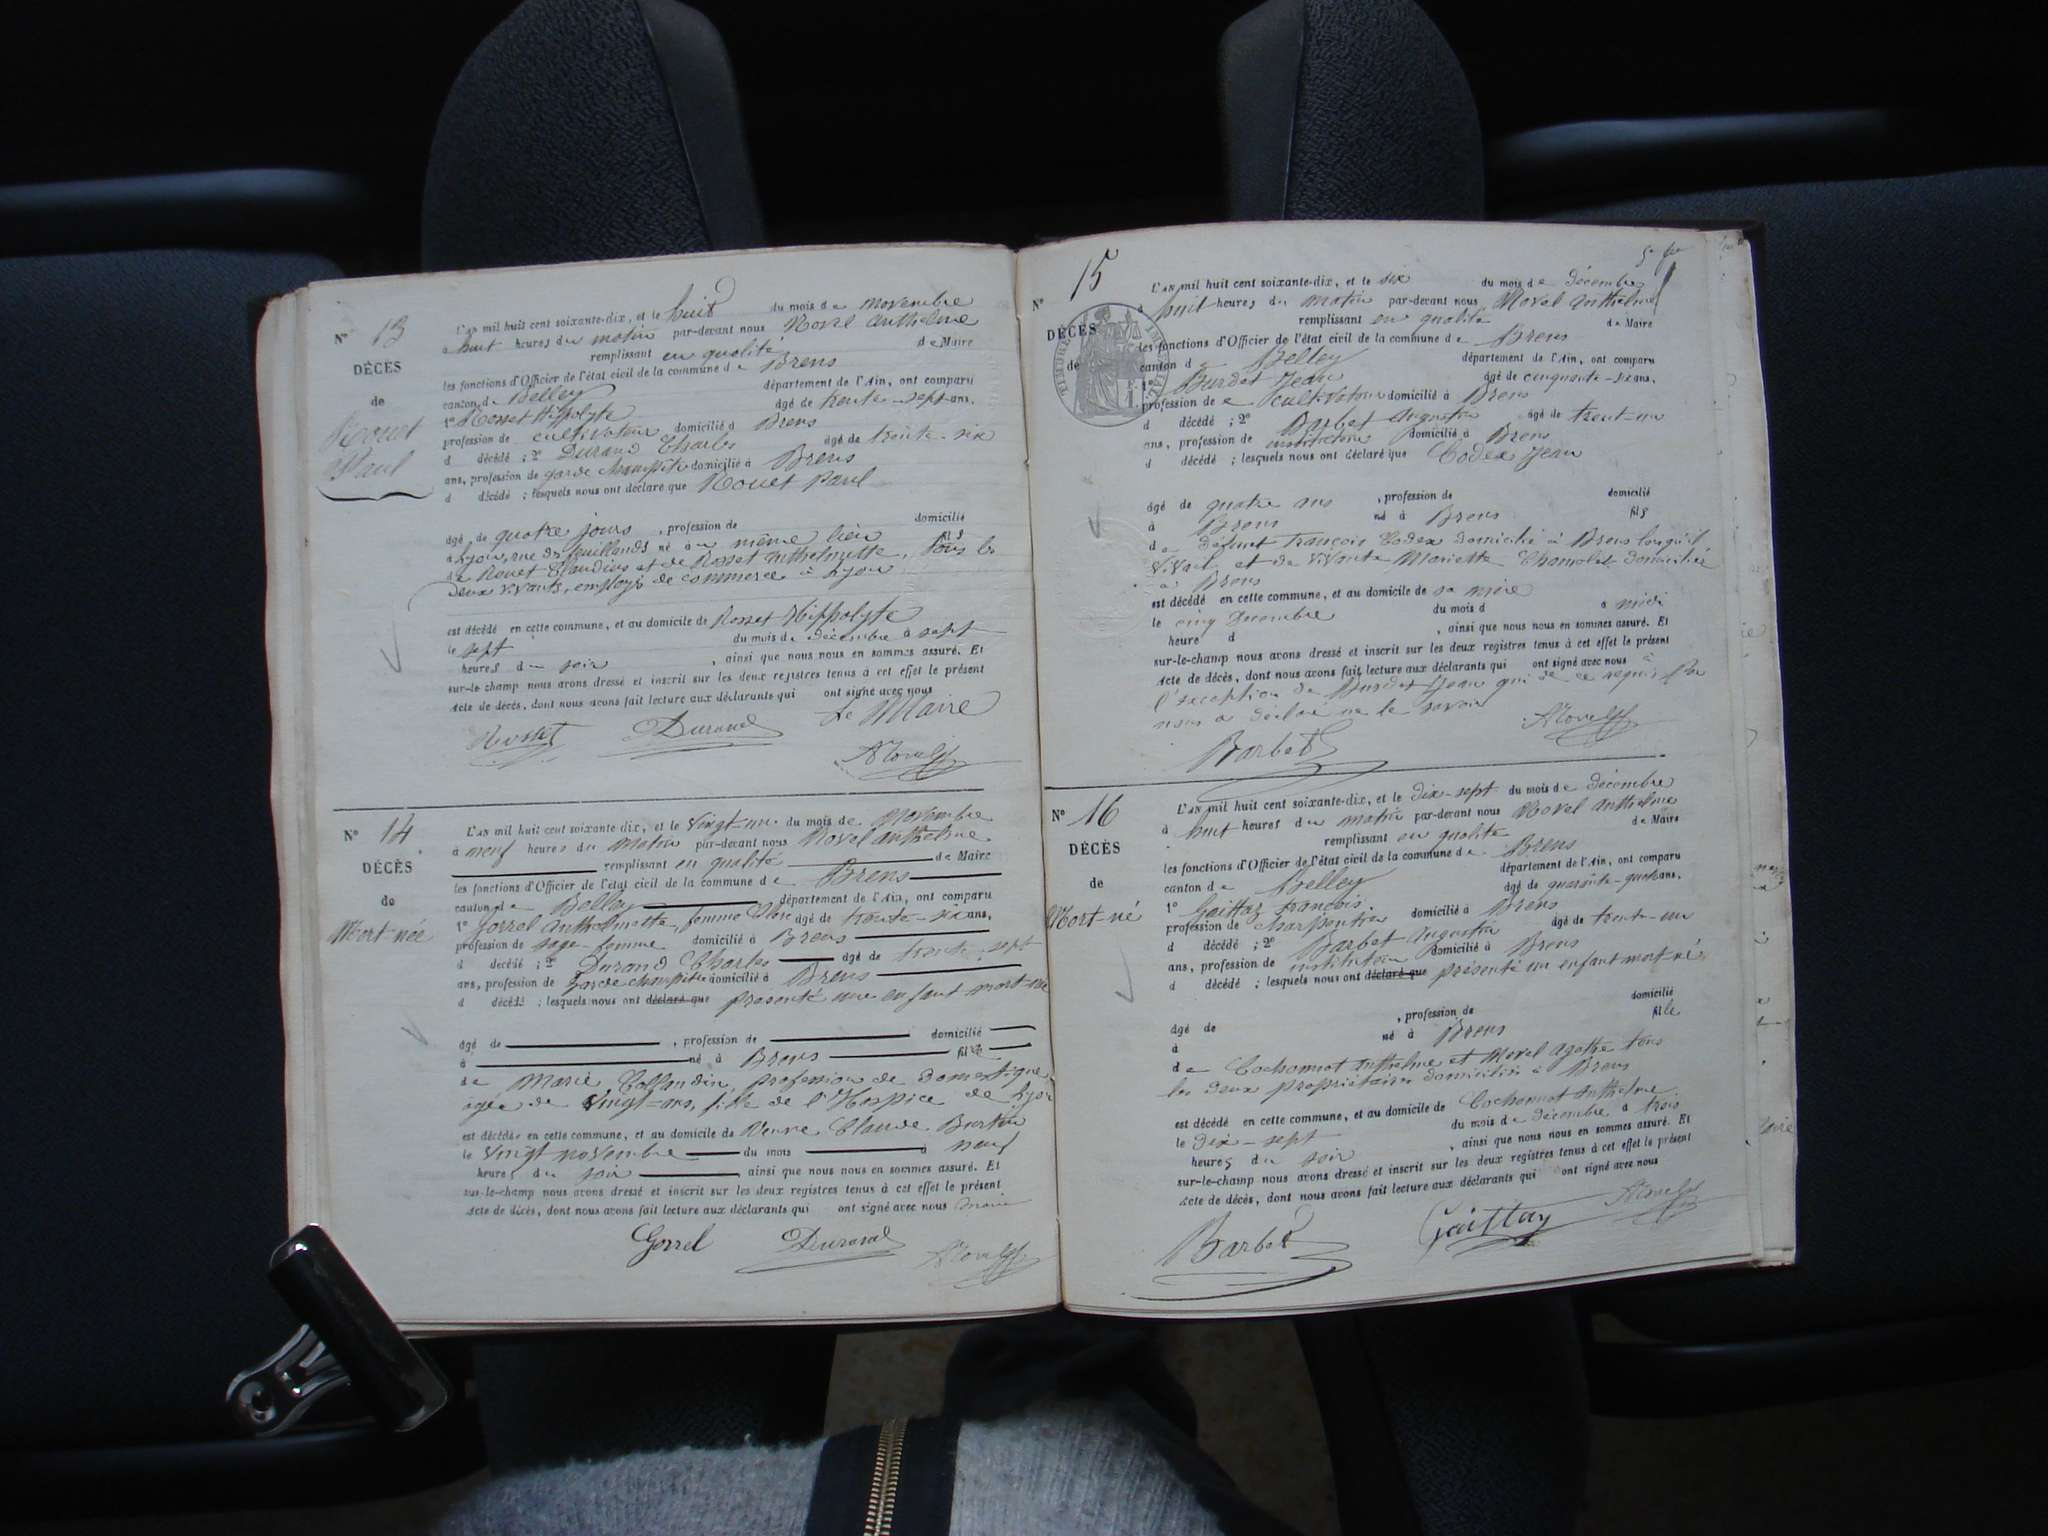 N° 13
DÉCÈS
de
Rouet
Paul
L'AN mil huit cent soixante-dix, et le huit du mois de novembre
à huit heures du matin par-devant nous Novel Anthelme
remplissant en qualité de Maire
les fonctions d'Officier de l'état civil de la commune de Brens
canton de Belley département de l'Ain, ont comparu
1° Rosset Hippolyte âgé de trente-sept ans,
profession de cultivateur domicilié à Brens
d décédé ; 2° Durand Charles âgé de trente-six
ans, profession de garde champêtre domicilié à Brens
d décédé ; lesquels nous ont déclaré que Rouet Paul
âgé de quatre jours , profession de domicilié
à Lyon, rue des feuillands né au même lieu fils
de Rouet Claudius et de Rosset Anthelmette, tous les
deux vivants, employé de commerce à Lyon
est décédé en cette commune, et au domicile de Rosset Hippolyte
le sept du mois de décembre à sept
heures du soir , ainsi que nous nous en sommes assuré. Et
sur-le champ nous avons dressé et inscrit sur les deux registres tenus à cet effet le présent
acte de décès, dont nous avons fait lecture aux déclarants qui ont signé avec nous
Le Maire
Rosset Durand ANovel
N° 14
DÉCÈS
de
Mort-née
L'AN mil huit cent soixante dix, et le vingt-un du mois de Novembre
à neuf heures du matin par-devant nous Novel Anthelme
remplissant en qualité de Maire
les fonctions d'Officier de l'état civil de la commune de Brens
canton de Belley département de l'Ain, ont comparu
1° Gorrel Anthelmette, femme âgé de trente-six ans,
profession de sage-femme domicilié à Brens
d décédé ; 2° Durand Charles âgé de trente-sept
ans, profession de Garde champêtre domicilié à Brens
d décédé ; lesquels nous ont déclaré que présenté une enfant mort-née
âgé de , profession de domicilié
à né à Brens fille
de Marie Collaudin, profession de domestique
âgée de vingt-ans, fille de l'Hospice de Lyon
est décédée en cette commune, et au domicile de Veuve Claude Berthin
le vingt novembre du mois à neuf
heures du soir ainsi que nous nous en sommes assuré. Et
sur-le-champ nous avons dressé et inscrit sur les deux registres tenus à cet effet le présent
acte de décès, dont nous avons fait lecture aux déclarants qui ont signé avec nous maire
Gorrel Durand ANovel
N° 15
DÉCÈS
de
L'AN mil huit cent soixante-dix, et le six du mois de décembre
à huit heures du matin par-devant nous Novel Anthelme
remplissant en qualité de Maire
les fonctions d'Officier de l'état civil de la commune de Brens
canton de Belley département de l'Ain, ont comparu
1° Burdet Jean âgé de cinquante-six ans,
profession de cultivateur domicilié à Brens
d décédé ; 2° Barbet Augustin âgé de trent-un
ans, profession de instituteur domicilié à Brens
d décédé ; lesquels nous ont déclaré que Codex Jean
âgé de quatre ans , profession de domicilié
à Brens né à Brens fils
de défunt François Codex domicilié à Brens lorsqu'il
vivait et de vivante Mariette Chamolet domiciliée
à Brens
est décédé en cette commune, et au domicile de sa mère
le cinq décembre du mois d à midi
heure d , ainsi que nous nous en sommes assuré. Et
sur-le-champ nous avons dressé et inscrit sur les deux registres tenus à cet effet le présent
acte de décès, dont nous avons fait lecture aux déclarants qui ont signé avec nous à
l'exception de Burdet Jean qui de ce requis Par
nous a déclaré ne le savoir
Barbet ANovel
N° 16
DÉCÈS
de
Mort-né
L'AN mil huit cent soixante-dix, et le dix-sept du mois de décembre
à huit heures du matin par-devant nous Novel Anthelme
remplissant en qualité de Maire
les fonctions d'Officier de l'état civil de la commune de Brens
canton de Belley département de l'Ain, ont comparu
1° Gaittaz François âgé de quarante-quatre ans,
profession de charpentier domicilié à Brens
d décédé ; 2° Barbet Augustin âgé de trente-un
ans, profession de instituteur domicilié à Brens
d décédé ; lesquels nous ont déclaré que présenté un enfant mort-né
âgé de , profession de domicilié
à né à Brens fil
de Cochonnot Anthelme et Morel Agathe tous
les deux propriétaires domiciliés à Brens
est décédé en cette commune, et au domicile de Cochonnot Anthelme
le dix-sept du mois de décembre à trois
heures du soir , ainsi que nous nous en sommes assuré. Et
sur-le-champ nous avons dressé et inscrit sur les deux registres tenus à cet effet le présent
acte de décès, dont nous avons fait lecture aux déclarants qui ont signé avec nous
Barbet Gaittaz ANovel